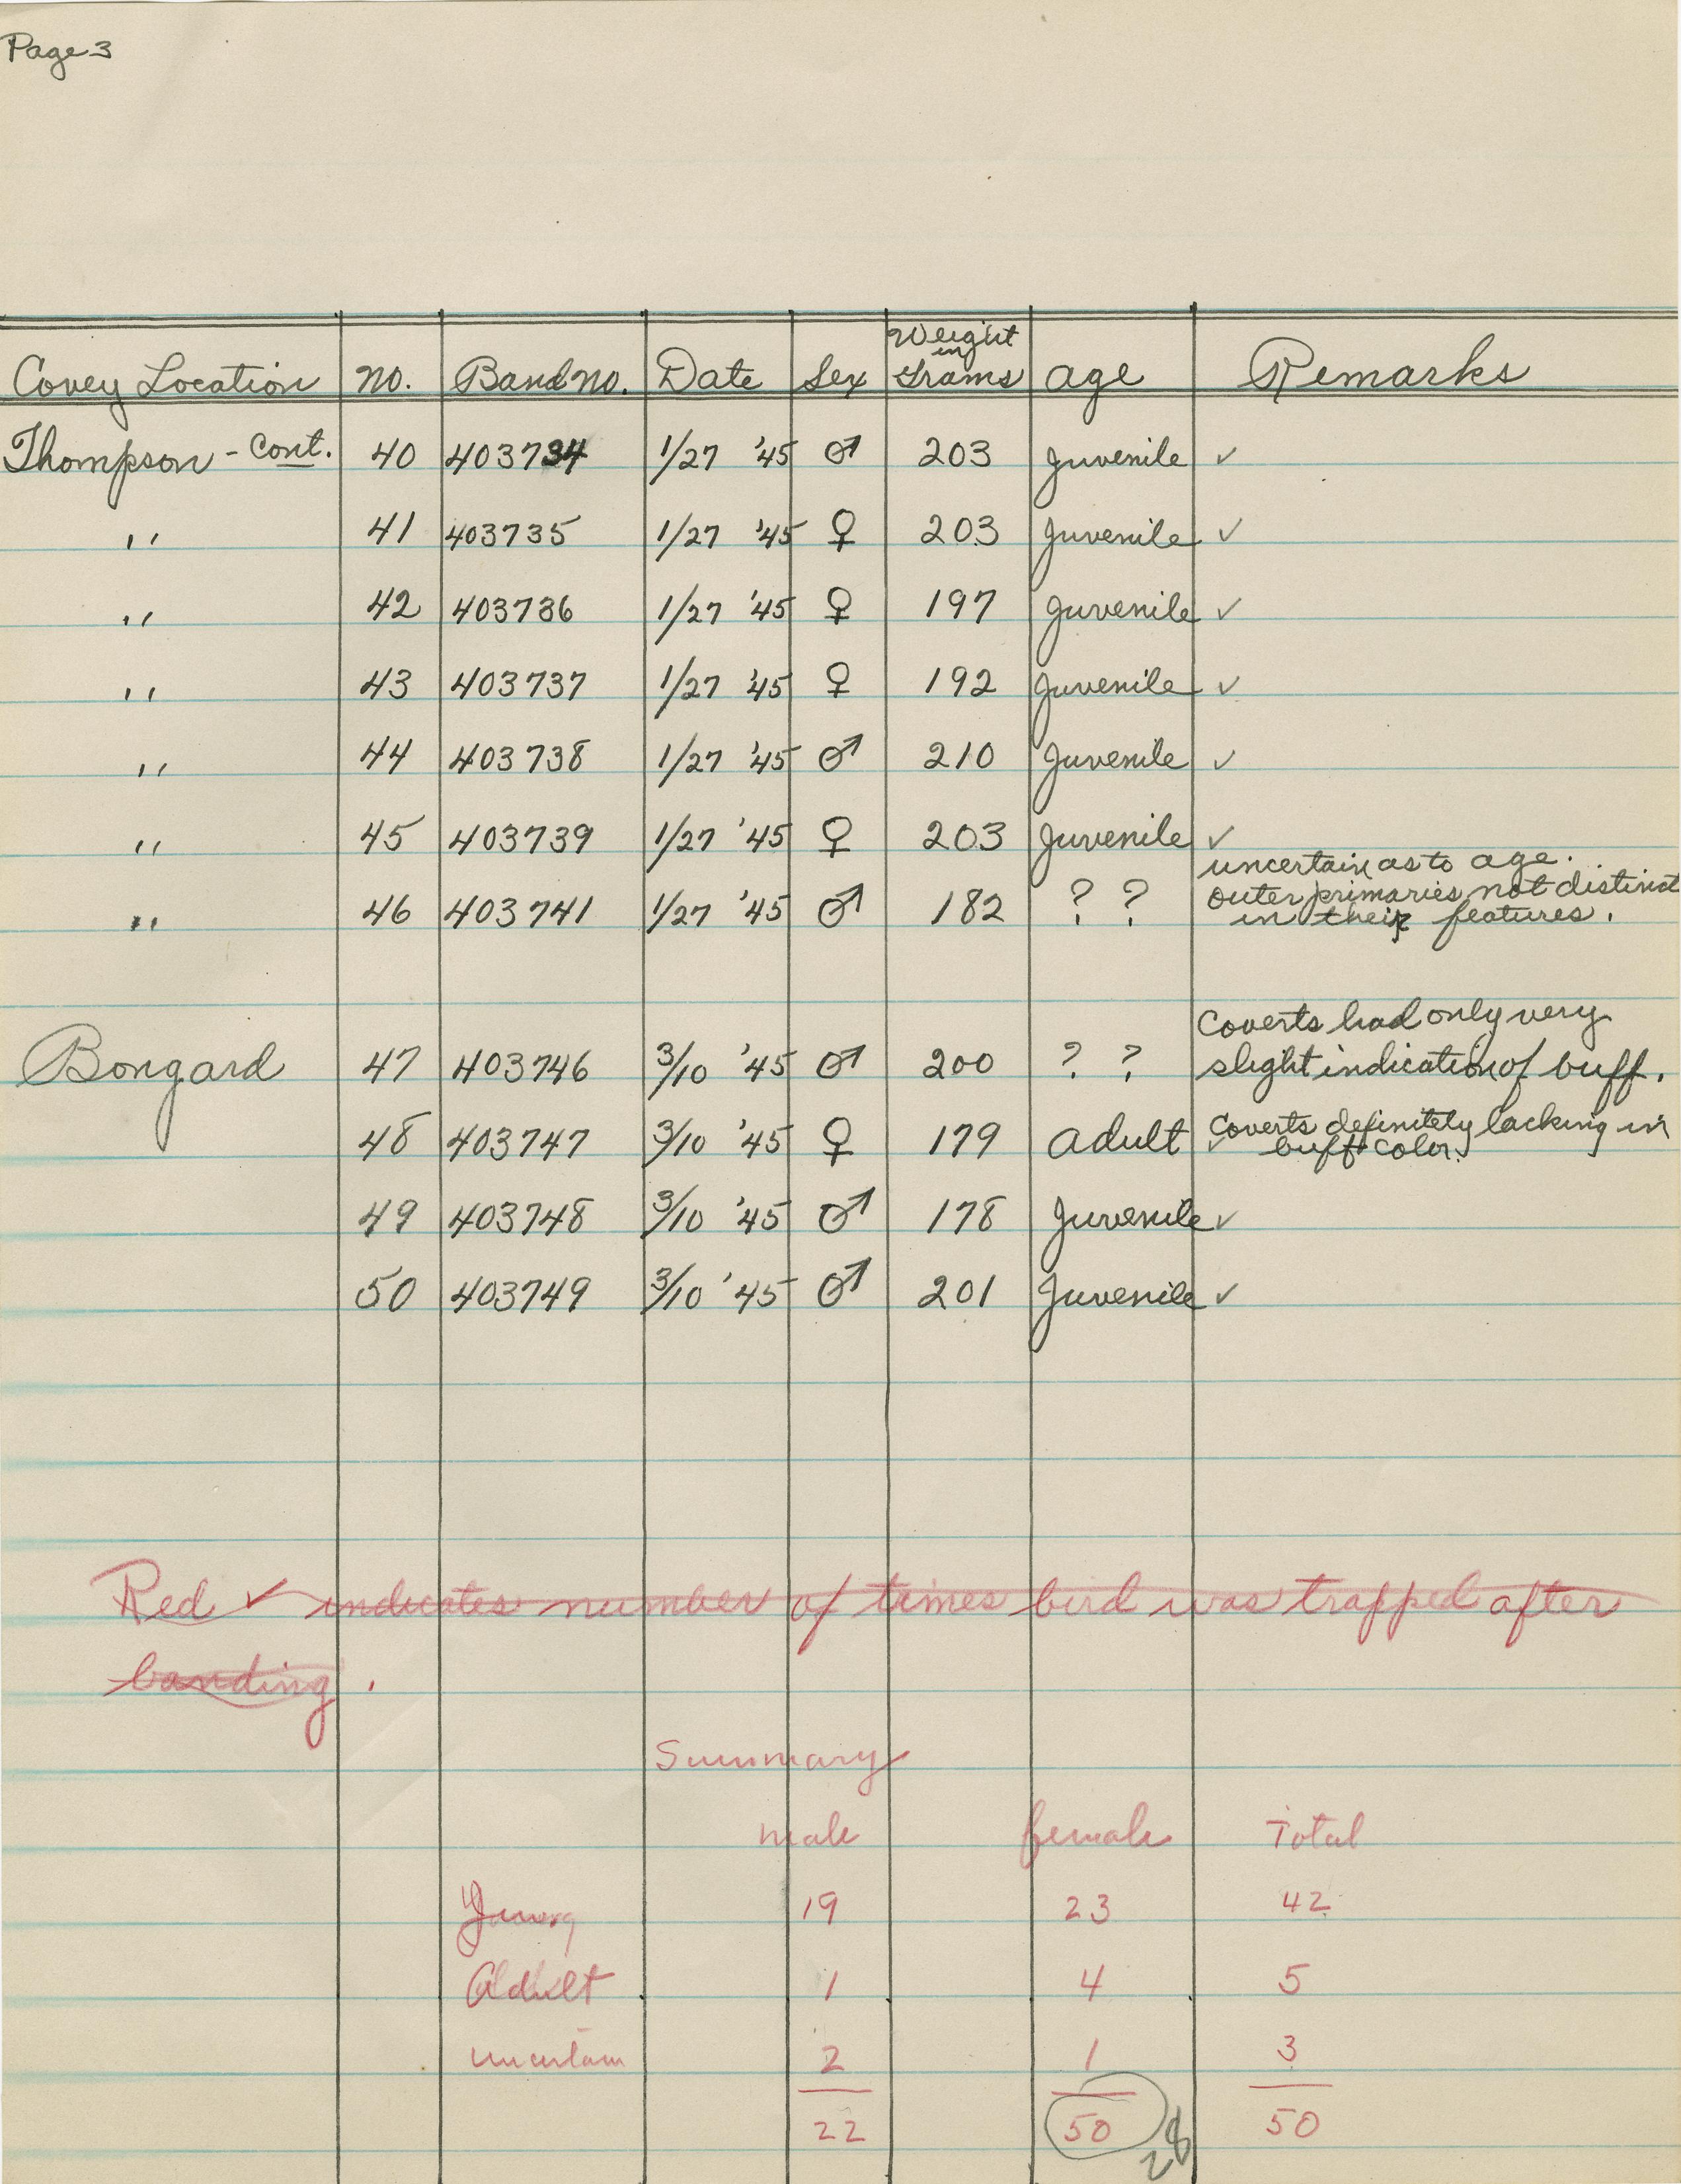 Page 3
Covey Location No. Band No. Date Sex Weight in Grams Age Remarks
Thompson - Cont. 40 403734 1/27 '45 ♂ 203 Juvenile ✓
" 41 403735 1/27 '45 ♀ 203 Juvenile ✓
" 42 403736 1/27 '45 ♀ 197 Juvenile ✓
" 43 403737 1/27 '45 ♀ 192 Juvenile ✓
" 44 403738 1/27 '45 ♂ 210 Juvenile ✓
" 45 403739 1/27 '45 ♀ 203 Juvenile ✓
" 46 403741 1/27 '45 ♂ 182 ? ? uncertain as to age.
outer primaries not distinct
in their features.
Bongard 47 403746 3/10 '45 ♂ 200 ? ? Coverts had only very
slight indication of buff.
48 403747 3/10 '45 ♀ 179 Adult ✓ Coverts definitely lacking in
buff color.
49 403748 3/10 '45 ♂ 178 Juvenile ✓
50 403749 3/10 '45 ♂ 201 Juvenile ✓
Red ✓ indicates number of times bird was trapped after
banding.
Summary
male female Total
Young 19 23 42
Adult 1 4 5
uncertain 2 1 3
22 50 50
28